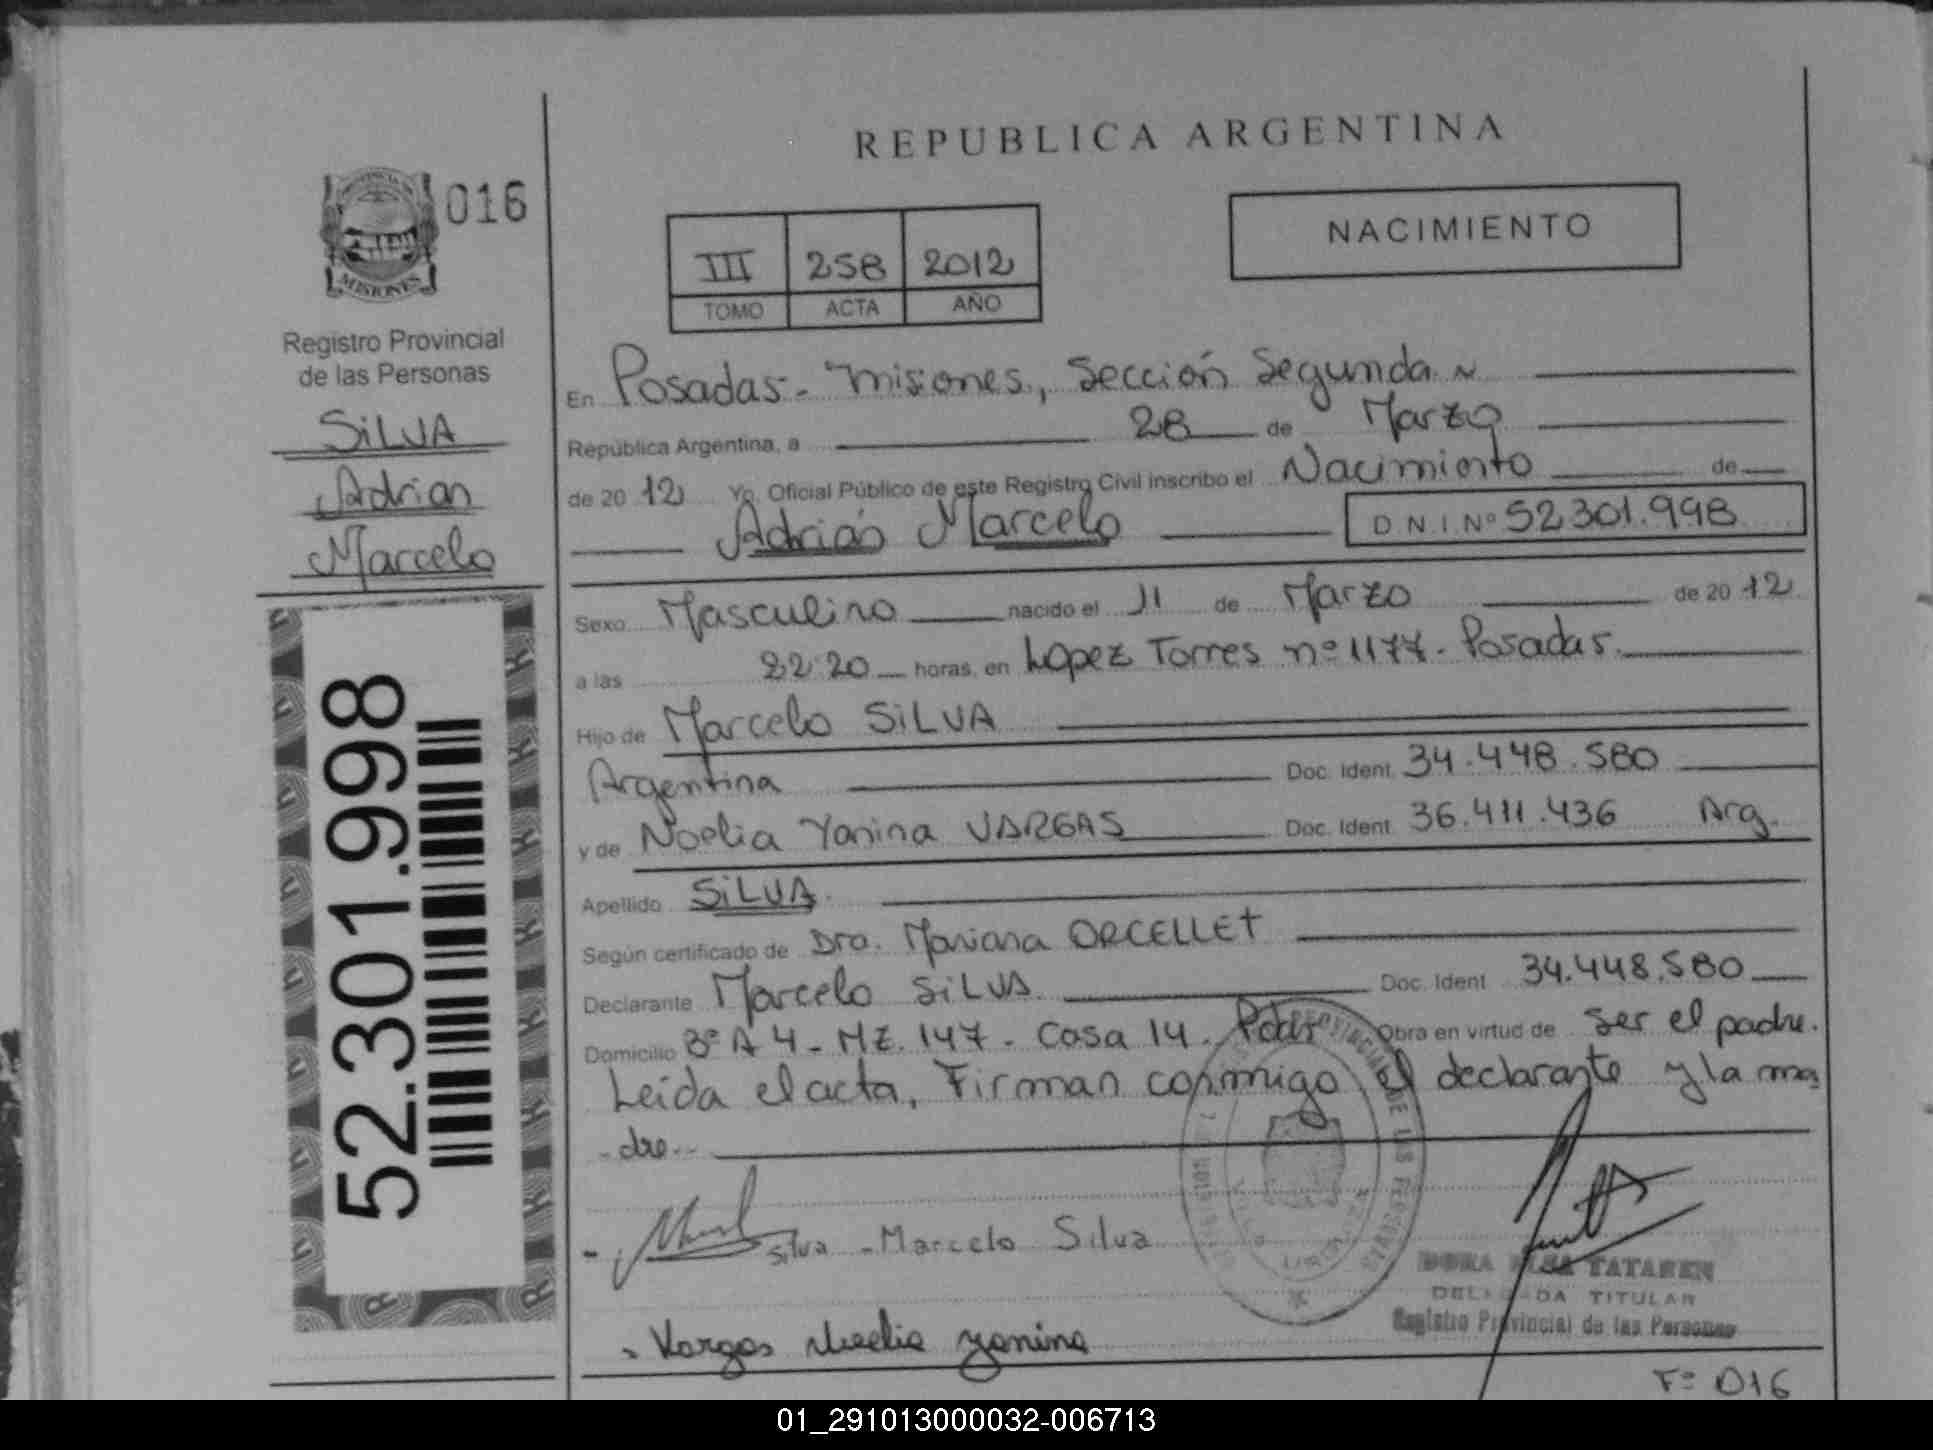 REPUBLICA ARGENTINA
016
MISIONES
Registro Provincial
de las Personas
SILVA
Adrian
Marcelo
52.301.998
III 258 2012
TOMO ACTA AÑO
NACIMIENTO
En Posadas - Misiones, Sección Segunda
República Argentina, a 28 de Marzo
de 2012 Yo, Oficial Público de este Registro Civil inscribo el Nacimiento de
Adrián Marcelo D.N.I.Nº 52301.998
Sexo Masculino nacido el 11 de Marzo de 2012
a las 22:20 horas, en Lopez Torres nº 1177. Posadas.
Hijo de Marcelo SILVA
Argentina Doc. Ident. 34.448.580
y de Noelia Yanina VARGAS Doc. Ident. 36.411.436 Arg.
Apellido SILVA.
Según certificado de Dra. Mariana ORCELLET
Declarante Marcelo SILVA Doc. Ident. 34.448.580
Domicilio A 4 - MZ. 147 - Casa 14. Pdas Obra en virtud de ser el padre.
Leida el acta, Firman conmigo el declarante y la ma
-dre.-
Silva - Marcelo Silva
TATAREN
DELEGADA TITULAR
Registro Provincial de las Personas
Vargas Noelia Yanina
Fº 016
01_291013000032-006713